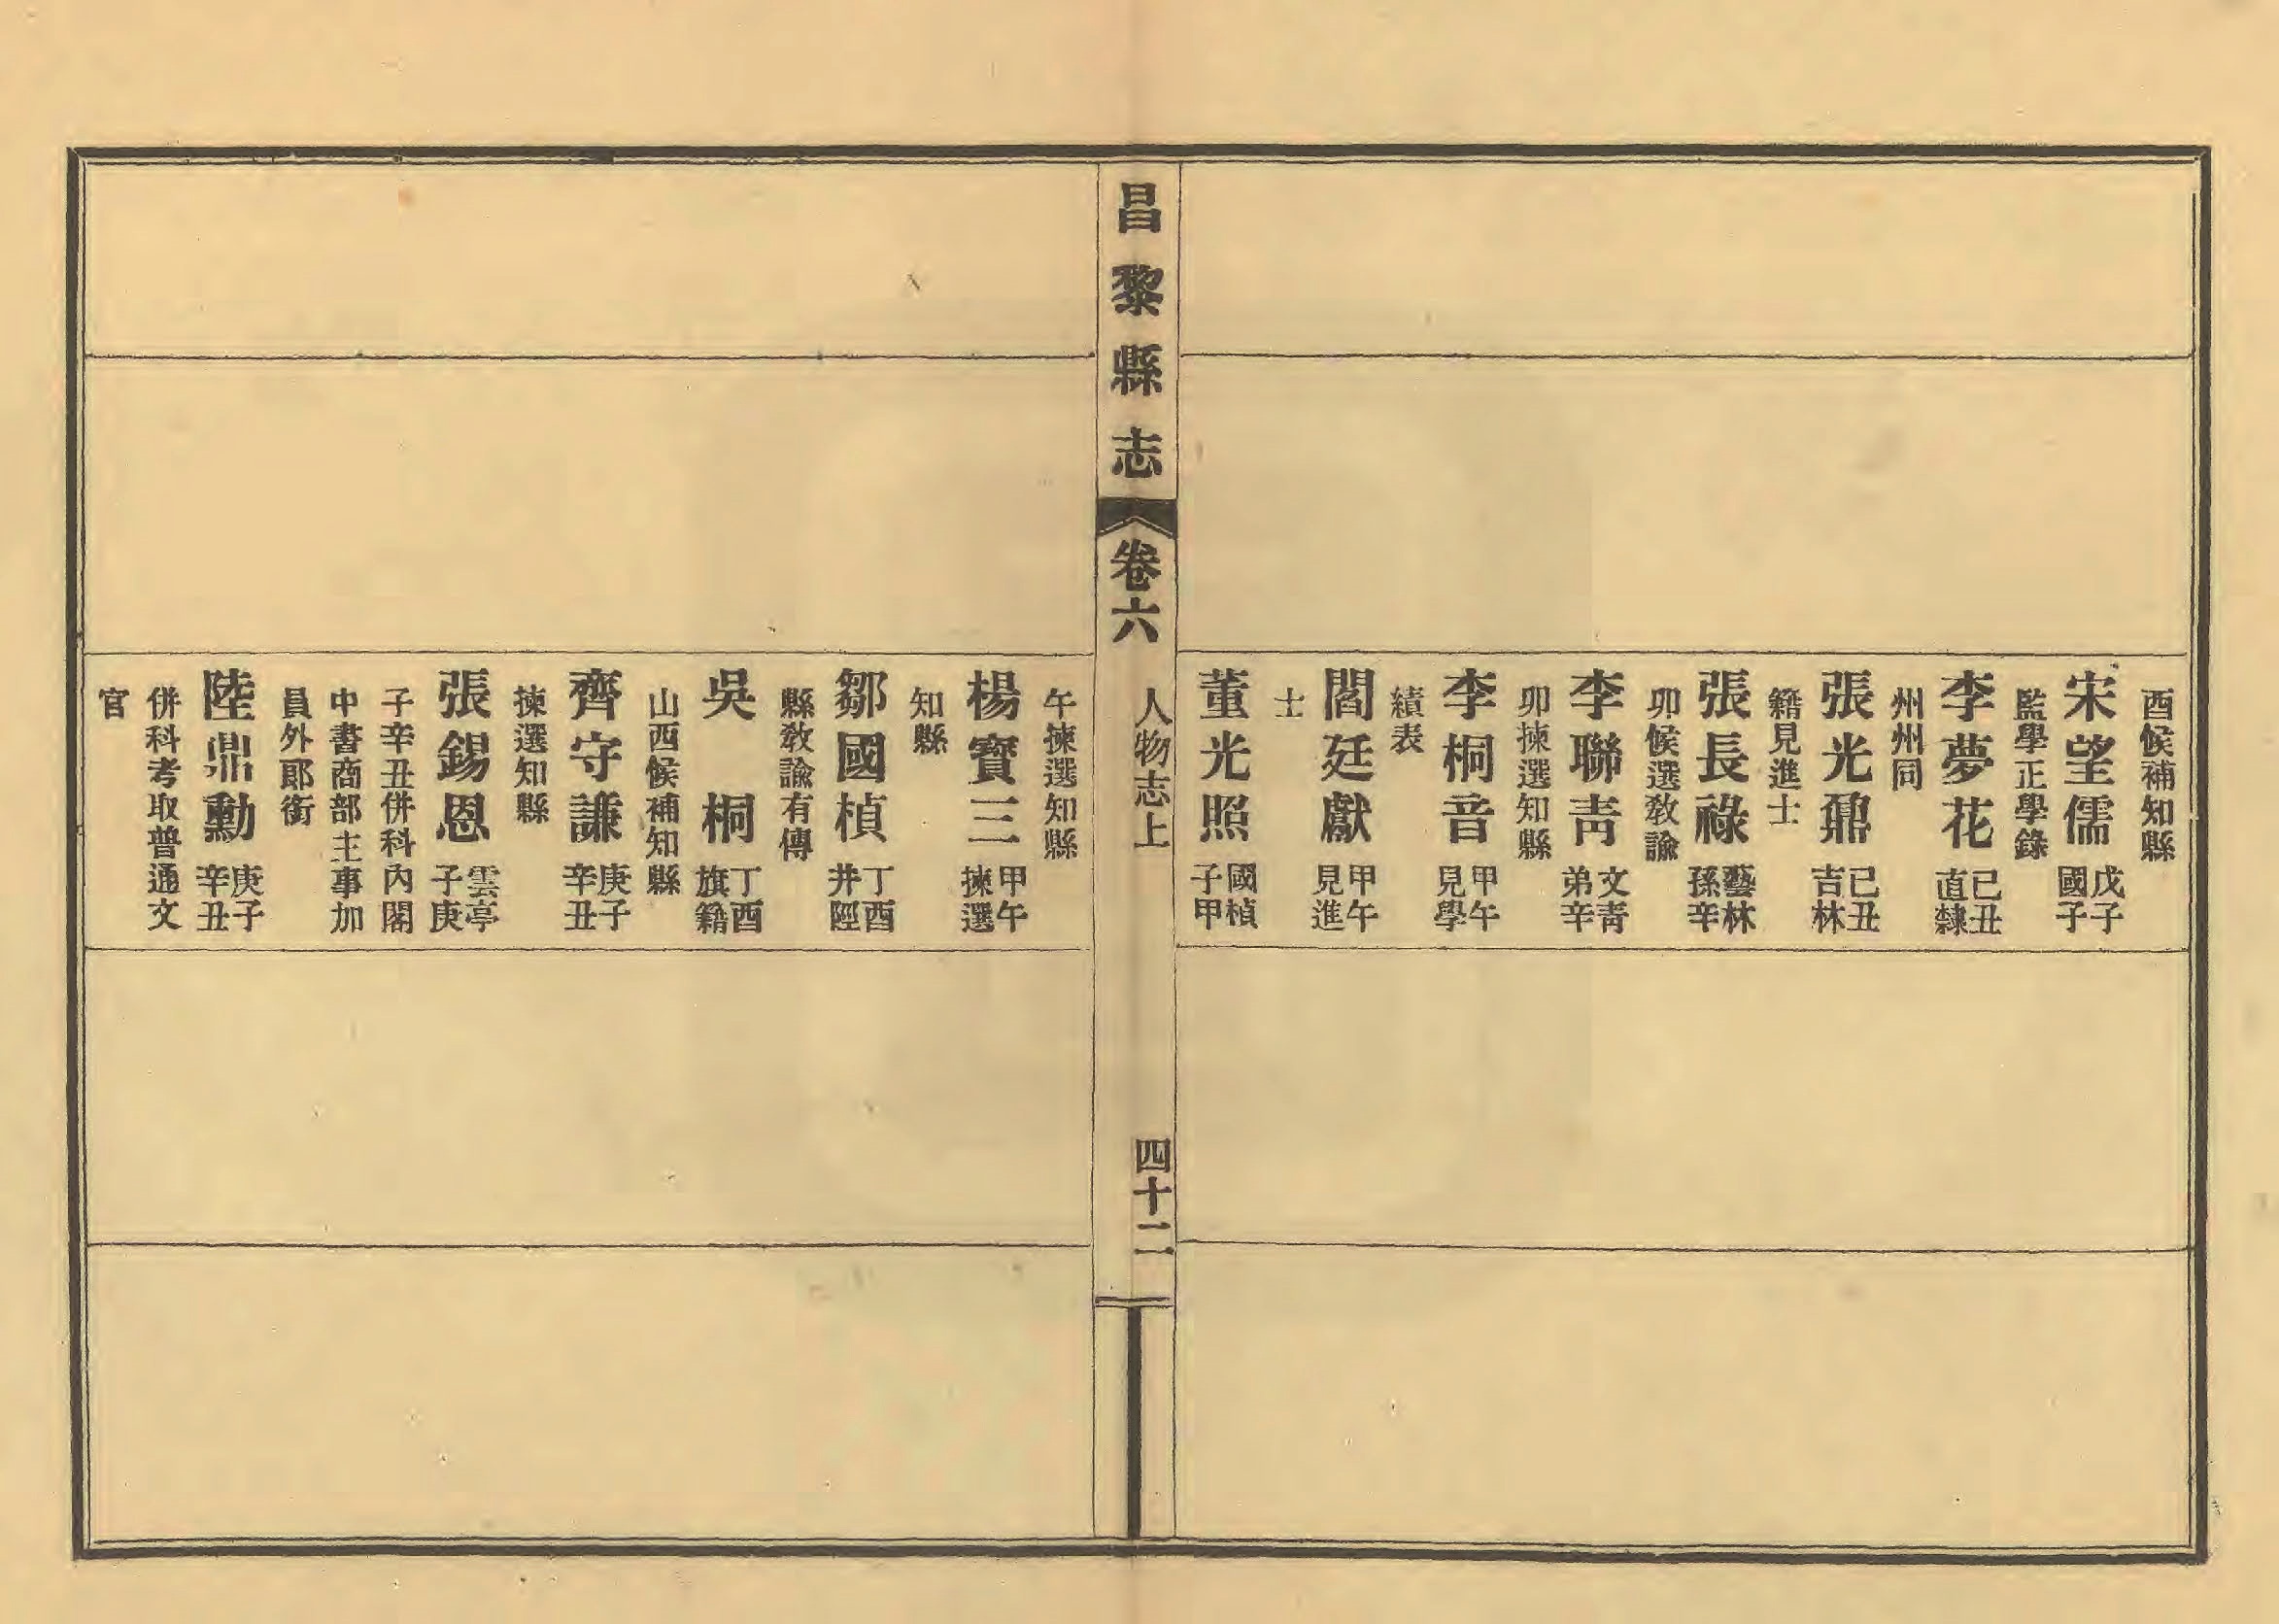 酉候補知縣
宋望儒 戊子國子
監學正學錄
李夢花 己丑直隸
州州同
張光鼐 己丑吉林
籍見進士
張長祿 藝林孫辛
卯候選教諭
李聯青 文青弟辛
卯揀選知縣
李桐音 甲午見學
績表
閻廷獻 甲午見進
士
董光照 國楨子甲
昌黎縣志 卷六 人物志上 四十二
午揀選知縣
楊寶三 甲午揀選
知縣
鄒國楨 丁酉井陘
縣教諭有傳
吳桐 丁酉旗籍
山西候補知縣
齊守謙 庚子辛丑
揀選知縣
張錫恩 雲亭子庚
子辛丑併科內閣
中書商部主事加
員外郎銜
陸鼎勳 庚子辛丑
併科考取普通文
官